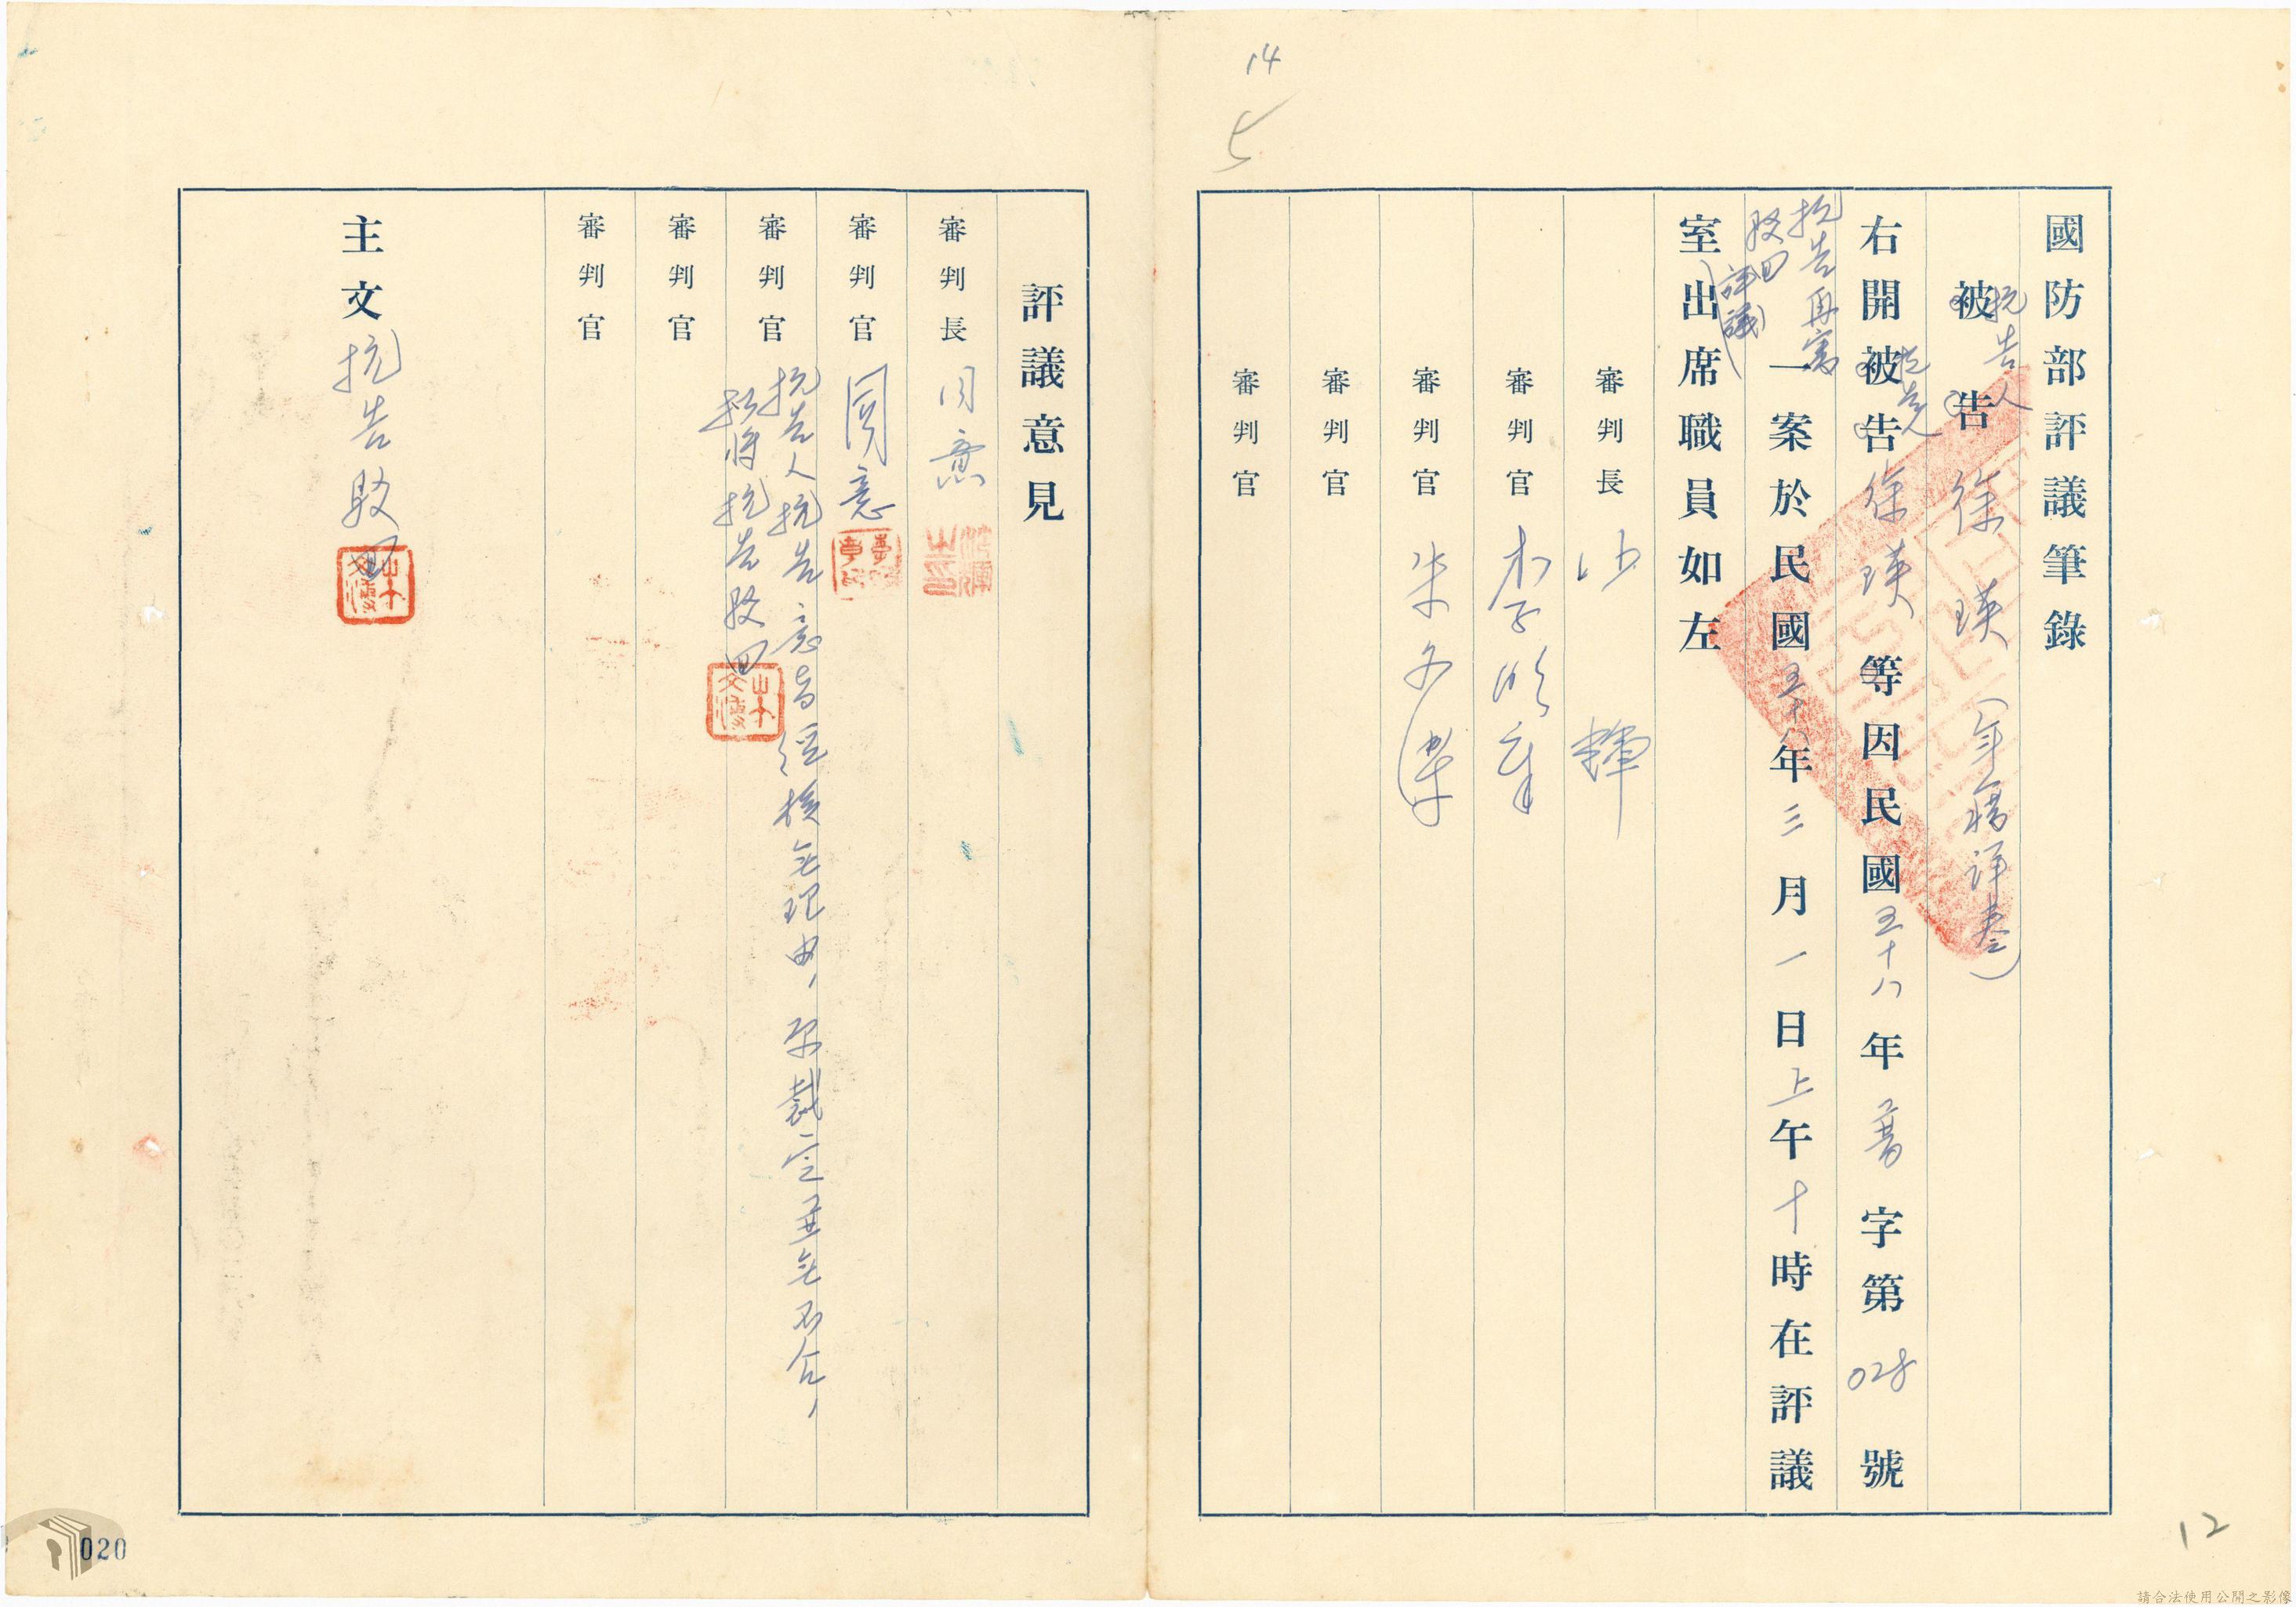 國防部評議筆錄
抗告人
被告 徐瑛 (年籍詳卷)
抗告
右開被告徐瑛等因民國五十八年普字第028號
抗告再審
駁回
(評議)
一案於民國五十八年三月一日上午十時在評議
室出席職員如左
審判長
審判官
審判官
審判官
審判官
14
評議意見
審判長 同意
審判官 同意
審判官 抗告人抗告意旨經核無理由,原裁定並無不合,
擬將抗告駁回
審判官
審判官
主文 抗告駁回
12
020
請合法使用公開之影像